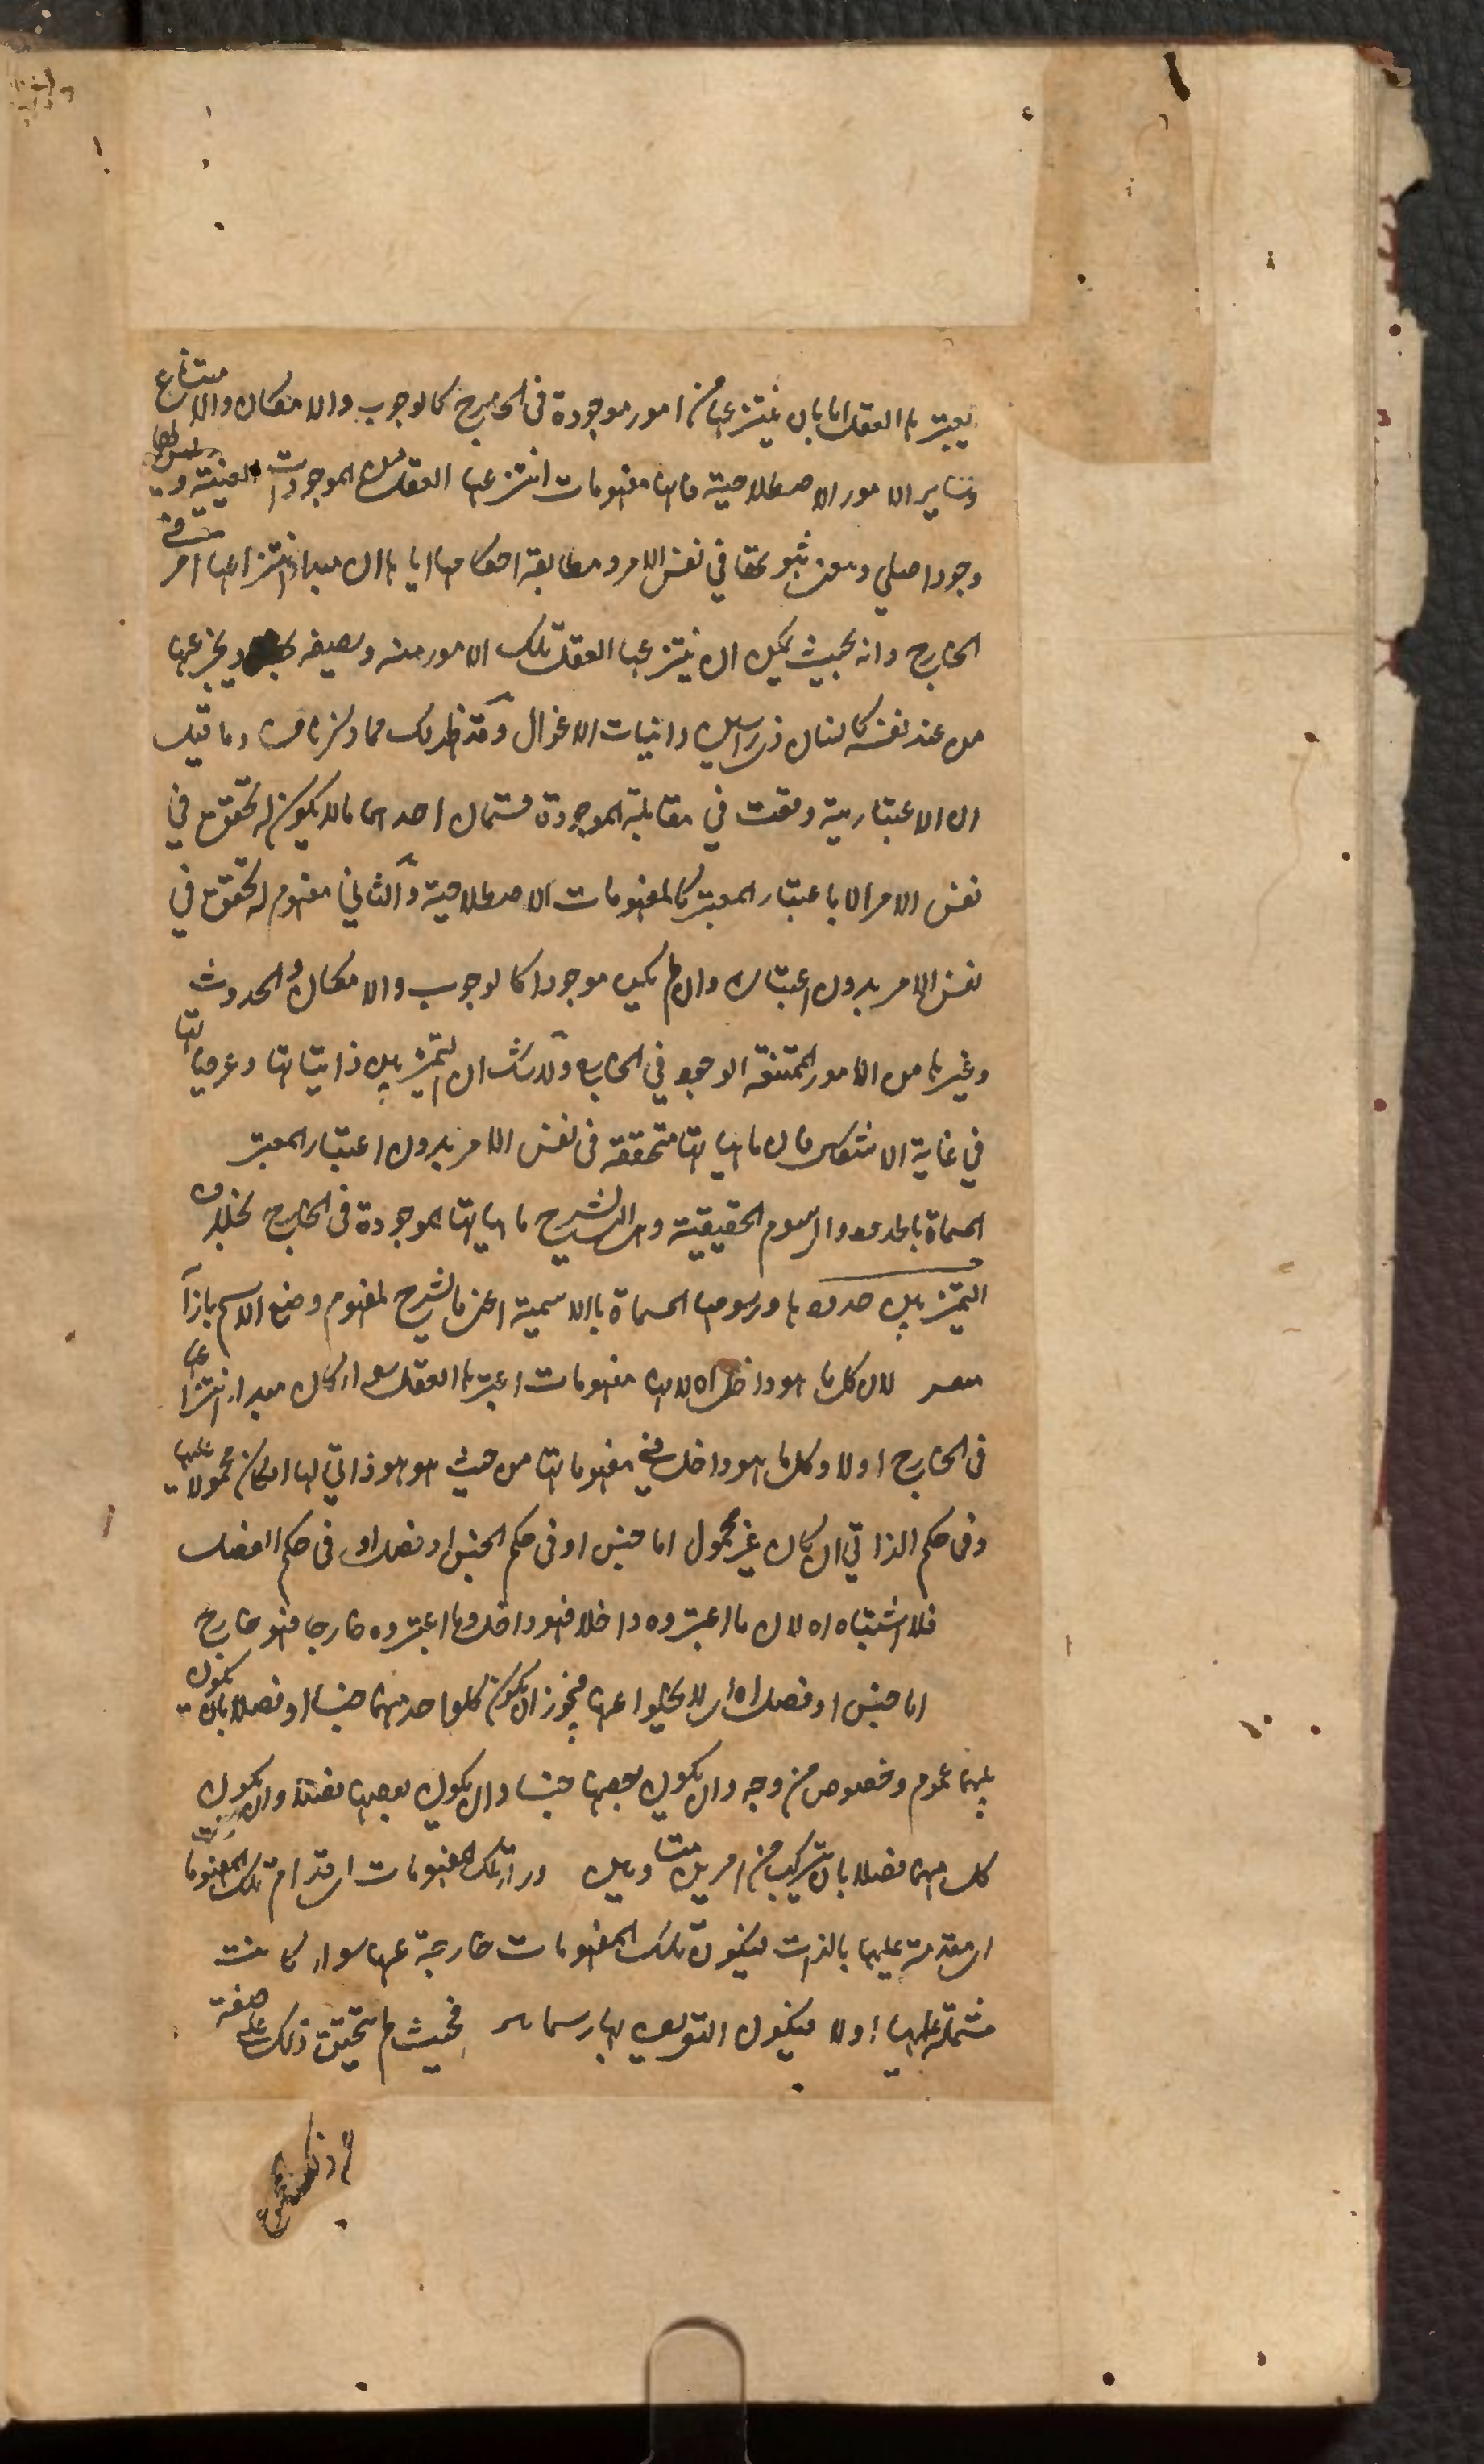 يعتبرها العقل اما بان ينتزعها من امور موجودة في الخارج كالوجوب والامكان والامتناع
وساير الامور الاصطلاحية فانها مفهومات انتزعها العقل من الموجودات العينية وليس لها
وجود اصلي ومعنى ثبوتها في نفس الامر ومطابقة احكامها اياها ان مبدا انتزاعها امر في
الخارج وانه بحيث يمكن ان ينتزع العقل تلك الامور منه ويصفه بها
من عند نفسه كانسان ذي راسين وانياب الاغوال وقد ظهر لك مما ذكرنا وما قيل
ان الاعتبارية وقعت في مقابلة الموجودة قسمان احدهما ما لا يكون له تحقق في
نفس الامر الا باعتبار المعتبر كالمفهومات الاصطلاحية والثاني مفهوم له تحقق في
نفس الامر بدون اعتباره وان لم يكن موجودا كالوجوب والامكان والحدوث
وغيرها من الامور الممتنعة الوجود في الخارج ولا شك ان التميز بين ذاتياتها وعرضياتها
في غاية الاشكال فان ماهياتها متحققة في نفس الامر بدون اعتبار المعتبر
المسماة بالحدود والرسوم الحقيقية وهي التي تشرح ماهياتها الموجودة في الخارج بخلاف
التميز بين حدودها ورسومها المسماة بالاسمية اعني ما يشرح لمفهوم وضع الاسم بازآ
لان كل ما هو داخل اه لانه مفهومات اعتبرها العقل سواء كان مبدا انتزاعها
في الخارج اولا وكل ما هو داخل في مفهوماتها من حيث هو هو ذاتي لها ان كان محمولا عليها
وفي حكم الذاتي ان كان غير محمول اما جنس او في حكم الجنس او فصل او في حكم الفصل
فلا اشتباه اه لان ما اعتبروه داخلا فهو داخل وما اعتبروه خارجا فهو خارج
اما جنس او فصل اه اي لا يخلوا عنهما فيجوز ان يكون كل واحد منهما جنسا او فصلا بان يكون
بينهما عموم وخصوص من وجه وان يكون بعضها جنسا وان يكون بعضها فصلا وان يكون
كل منهما فصلا بان يتركب من امرين متساويين وراء تلك المفهومات اي قدام تلك المفهومات
اي مقدمة عليها بالذات فيكون تلك المفهومات خارجة عنها سواء كانت
مشتملة عليها او لا فيكون التعريف بها رسما فحيث لم يتحقق ذلك على صفة